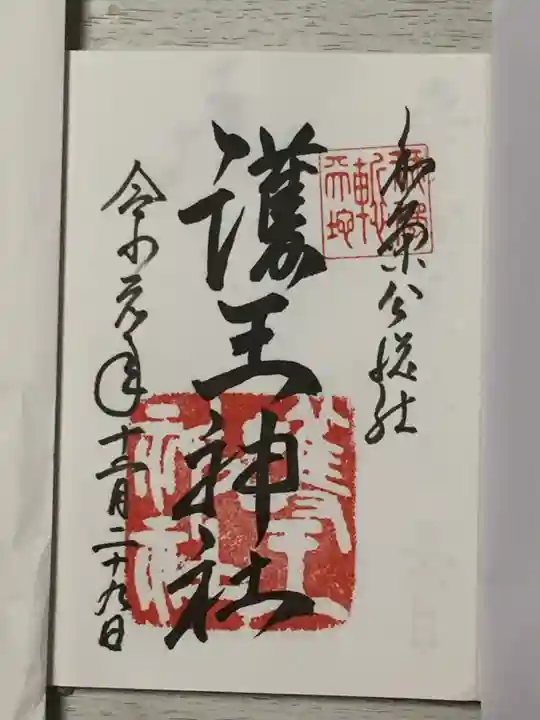 和気公総社
護王神社
令和元年
十二月二十九日
護王
神社